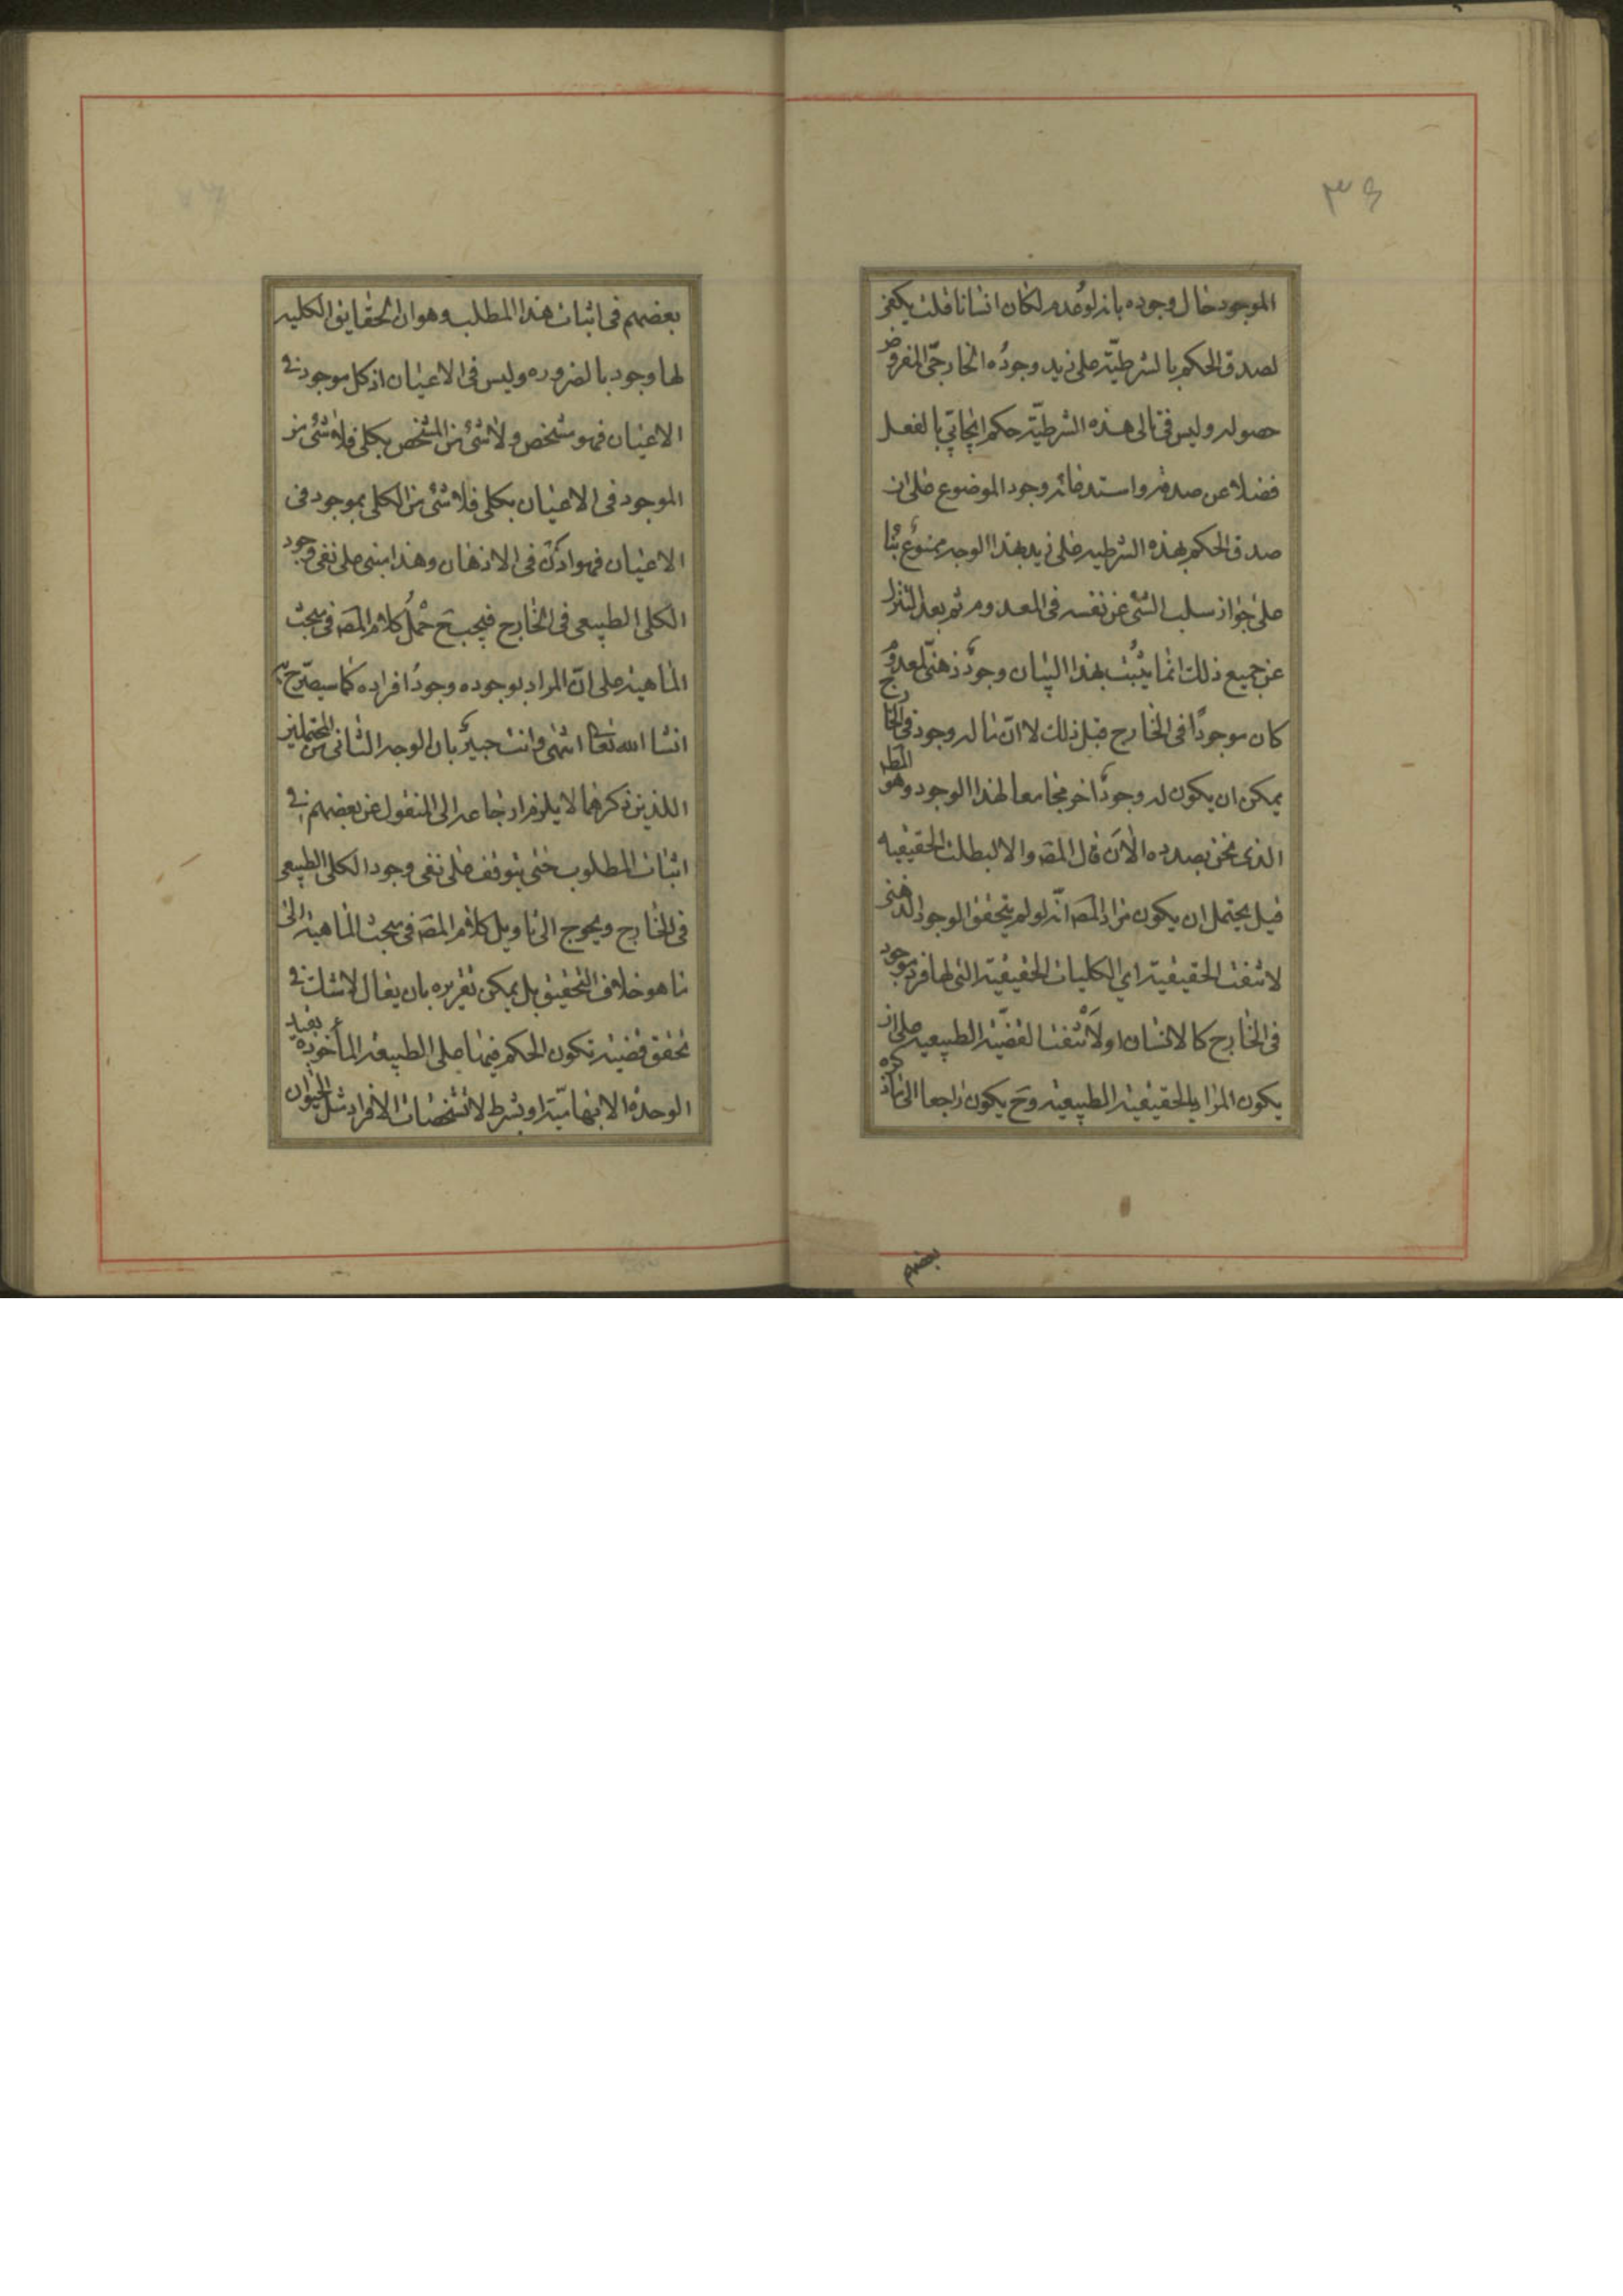 ٣٤
الموجود حال وجوده بانه لو عدم لكان انسانا قلت يكفى
لصدق الحكم بالشرطيّة على زيد وجودُه الخارجّى المفروض
حصوله وليس فى تالى هذه الشرطيّة حكم ايجابّي بالفعل
فضلا عن صدقه واستدعائه وجود الموضوع على ان
صدق الحكم بهذه الشرطيه على زيد بهذا الوجه ممنوع بنا
على جواز سلب الشئ عن نفسه فى المعدوم ثم بعد التنزل
عن جميع ذلك انما يثبُت بهذا البيان وجودٌ ذهنىّ لمعدوم
كان موجودًا فى الخارج قبل ذلك لا انّ ما له وجود فى الخارج
يمكن ان يكون له وجودٌ اخر مجامعا لهذا الوجود وهو المط
الذى نحن بصدده الآن قال المصه والا لبطلت الحقيقيه
قيل يحتمل ان يكون مراد المصه انّه لو لم يتحقق الوجود الذهنى
لانتفت الحقيقية اي الكليات الحقيقية التى لها فرد موجود
فى الخارج كالانسان او لانتفت القضيّة الطبيعيه على ان
يكون المراد بالحقيقية الطبيعيه وح يكون راجعا الى ما ذكره
بعضهم
بعضهم فى اثبات هذا المطلب وهو ان الحقايق الكليه
لها وجود بالضروره وليس فى الاعيان اذ كل موجود فى
الاعيان فهو مشخص ولا شئ من المشخص بكلى فلا شئ من
الموجود فى الاعيان بكلى فلا شئ من الكلى بموجود فى
الاعيان فهو اذن فى الاذهان وهذا مبنى على نفى وجود
الكلى الطبيعى فى الخارج فيجب ح حمل كلام المصه فى مبحث
الماهية على انّ المراد بوجوده وجودُ افراده كما سيصرّح به
انشا الله تعالى انتهى وانت خبيرٌ بان الوجه الثانى من المحتملين
اللذين ذكرهما لا يلزم ارجاعه الى المنقول عن بعضهم فى
اثبات المطلوب حتى يتوقف على نفى وجود الكلى الطبيعى
فى الخارج ويحوج الى تاويل كلام المصه فى مبحث الماهية الى
ما هو خلاف التحقيق بل يمكن تقريره بان يقال لا شك فى
تحقق قضية تكون الحكم فيها على الطبيعة المأخوذة بقيد
الوحدة الابهاميّة او بشرط لا تشخصات الافراد مثل الحيوان